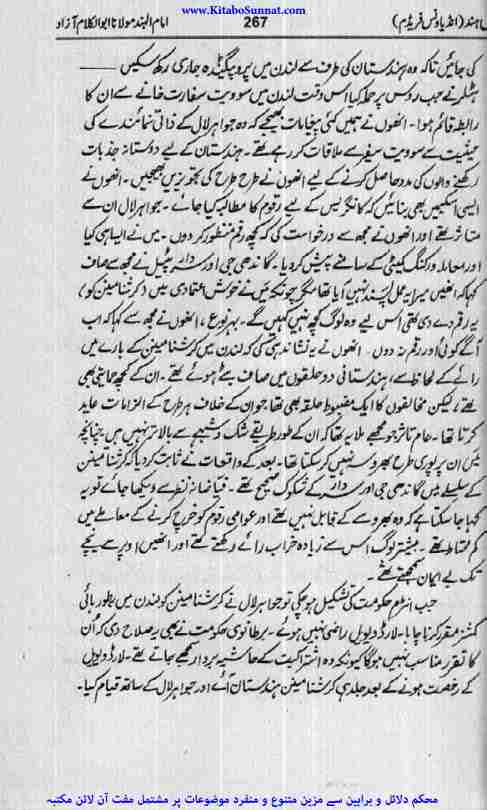 www.KitaboSunnat.com
ہند (انڈیا ونس فریڈم) 267 امام الہند مولانا ابوالکلام آزاد
کی جائیں تاکہ وہ ہندستان کی طرف سے لندن میں پروپیگنڈہ جاری رکھ سکیں
ہٹلر نے جب روس پر حملہ کیا اس وقت لندن میں سوویت سفارت خانے سے ان کا
رابطہ قائم ہوا۔ انھوں نے ہمیں کئی پیغامات بھیجے کہ وہ جواہر لال کے ذاتی نمائندے کی
حیثیت سے سوویت سفیر سے ملاقات کر رہے تھے۔ ہندستان کے لیے دوستانہ جذبات
رکھنے والوں کی مدد حاصل کرنے کے لیے انھوں نے طرح طرح کی تجویزیں بھیجیں۔ انھوں نے
ایسی اسکیمیں بھی بنائیں کہ کانگریس کے لیے رقوم کا مطالبہ کیا جائے۔ جواہر لال ان سے
متاثر تھے اور انھوں نے مجھ سے درخواست کی کہ کچھ رقم منظور کر دوں۔ میں نے ایسا ہی کیا
اور معاملہ ورکنگ کمیٹی کے سامنے پیش کر دیا۔ گاندھی جی اور سردار پٹیل نے مجھ سے صاف
کہا کہ انھیں میرا یہ عمل پسند نہیں آیا تھا مگر چونکہ میں نے خوش اعتمادی میں (کرشنا مینن کو)
یہ رقم دے دی تھی اس لیے وہ لوگ کچھ نہیں کہیں گے۔ بہر نوع، انھوں نے مجھ سے کہا کہ اب
آگے کوئی اور رقم نہ دوں۔ انھوں نے یہ نشاندہی کی کہ لندن میں کرشنا مینن کے بارے میں
رائے کے لحاظ سے، ہندستانی دو حلقوں میں صاف بٹے ہوئے تھے۔ ان کے کچھ حمایتی بھی
تھے، لیکن مخالفوں کا ایک مضبوط حلقہ بھی تھا جو ان کے خلاف ہر طرح کے الزامات عاید
کرتا تھا۔ عام تاثر جو مجھے ملا یہ تھا کہ ان کے طور طریقے شک و شبہے سے بالاتر نہیں ہیں چنانچہ
میں ان پر پوری طرح بھروسہ نہیں کر سکتا تھا۔ بعد کے واقعات نے ثابت کر دیا کہ کرشنا مینن
کے سلسلے میں گاندھی جی اور سردار کے شکوک صحیح تھے۔ فیاضانہ نظر سے دیکھا جائے تو یہ
کہا جا سکتا ہے کہ وہ بھروسے کے قابل نہیں تھے اور عوامی رقوم کو خرچ کرنے کے معاملے میں
کم محتاط تھے۔ بیشتر لوگ اس سے زیادہ خراب رائے رکھتے تھے اور انھیں اوپر سے نیچے
تک بے ایمان سمجھتے تھے۔
جب انٹرم حکومت کی تشکیل ہو چکی تو جواہر لال نے کرشنا مینن کو لندن میں بطور ہائی
کمشنر مقرر کرنا چاہا۔ لارڈ ویویل راضی نہیں ہوئے۔ برطانوی حکومت نے بھی یہ صلاح دی کہ اُن
کا تقرر مناسب نہیں ہوگا کیونکہ وہ اشتراکیت کے حاشیہ بردار سمجھے جاتے تھے۔ لارڈ ویویل
کے رخصت ہونے کے بعد جلد ہی کرشنا مینن ہندستان آئے اور جواہر لال کے ساتھ قیام کیا۔
محکم دلائل و براہین سے مزین متنوع و منفرد موضوعات پر مشتمل مفت آن لائن مکتبہ